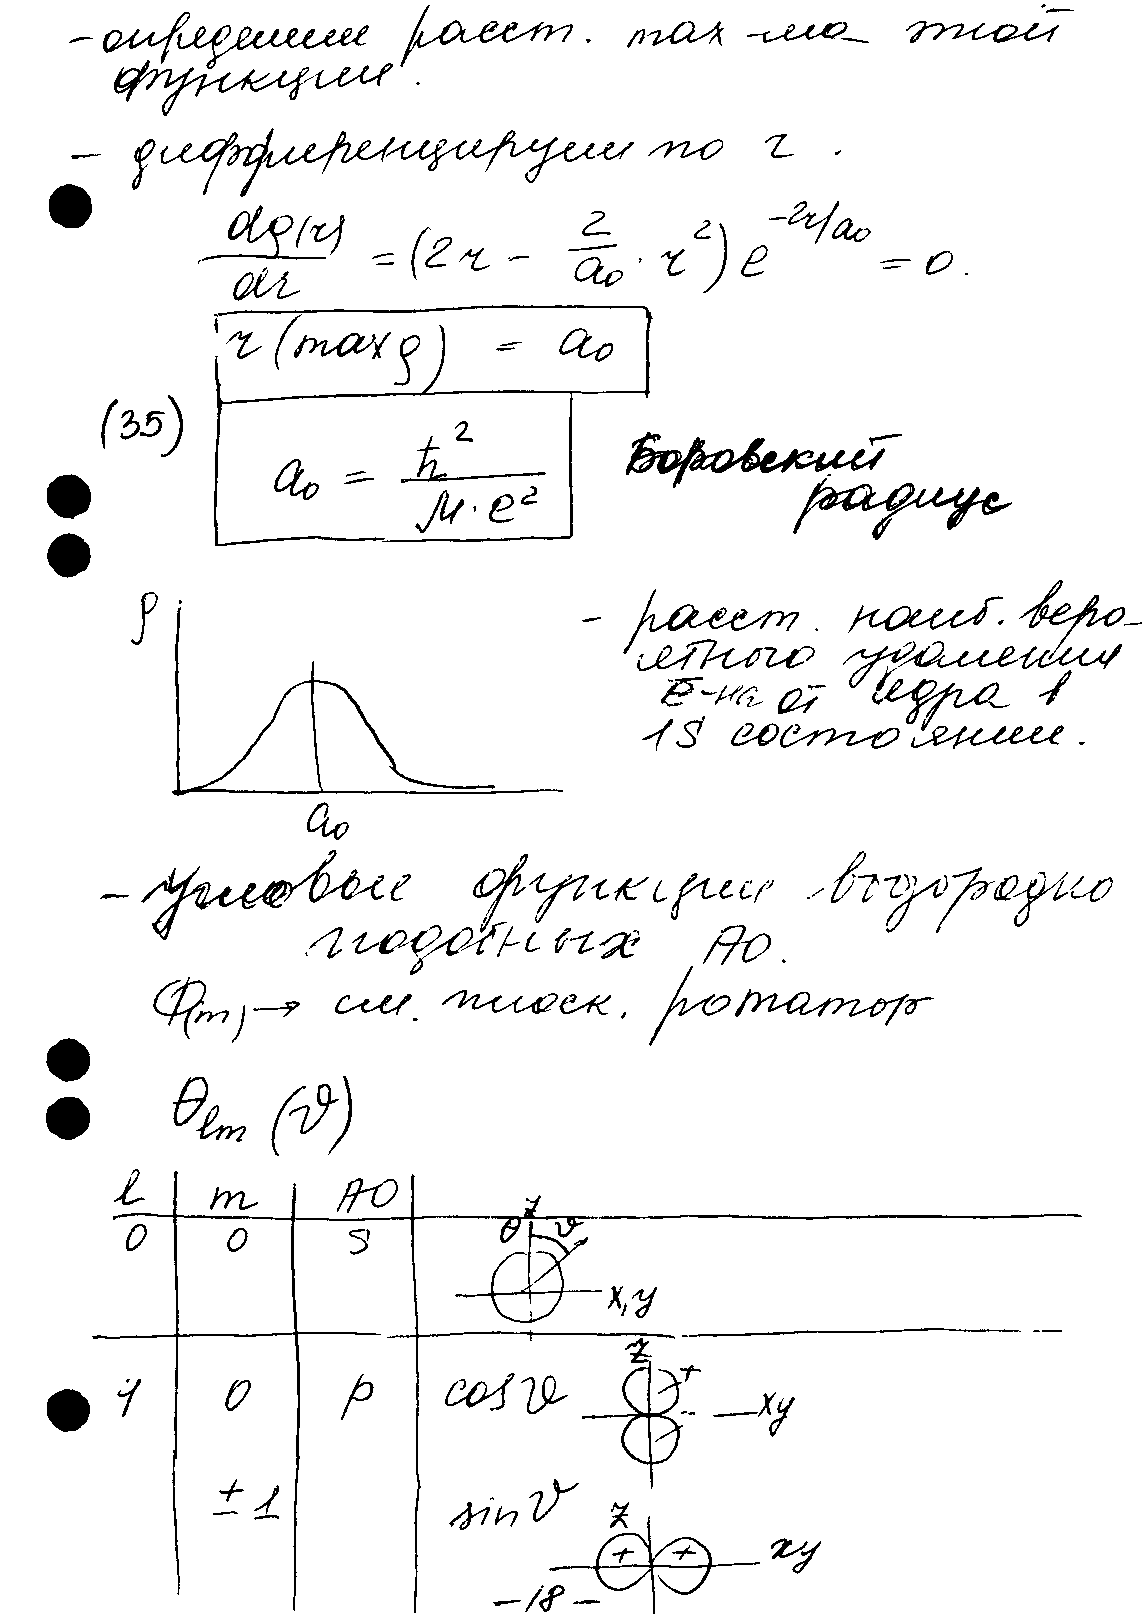 - определим расст. max-ма этой
функции.
- дифференцируем по r.
dρ(r)/dr = (2r - 2/a₀ · r²) e^(-2r/a₀) = 0.
r (max ρ) = a₀
(35)
a₀ = ħ²/(M·e²)
Боровский
радиус
ρ
- расст. наиб. веро-
ятного удаления
ē-на от ядра в
1S состоянии.
a₀
- угловые функции водородно
подобных АО.
Φ(m) → см. плоск. ротатор
Θlm (ϑ)
l m АО
0 0 S
z
θ ϑ
x,y
1 0 p cosϑ
z
+
-
xy
± 1 sinϑ
z
+ +
xy
-18-